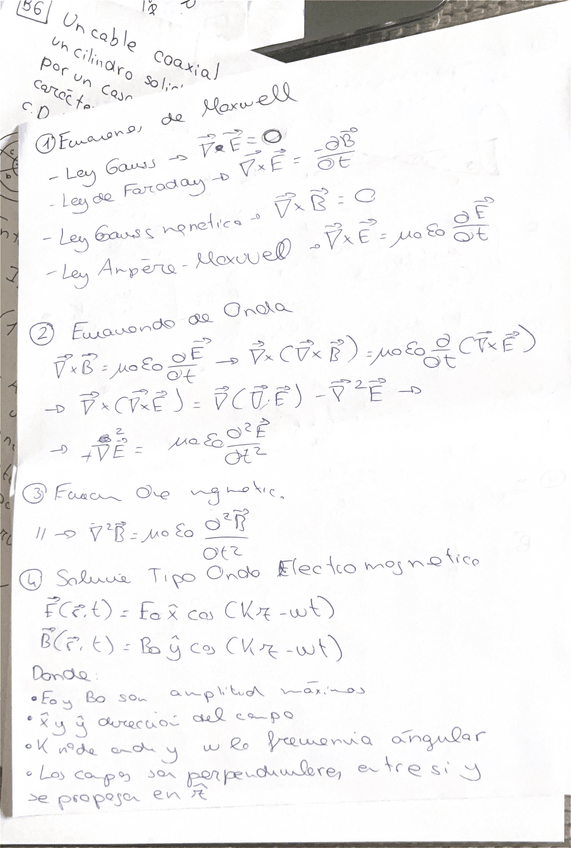 B6
Un cable coaxial
un cilindro soli
por un casc
carácte
C.D
① Ecuaciones de Maxwell
- Ley Gauss → ∇⃗•E⃗ = 0
- Ley de Faraday → ∇⃗×E⃗ = -∂B⃗/∂t
- Ley Gauss mgnetica → ∇⃗×B⃗ = 0
- Ley Ampère-Maxwell → ∇⃗×E⃗ = μ0ε0 ∂E⃗/∂t
② Ecuacondo de Onda
∇⃗×B⃗ = μ0ε0 ∂E⃗/∂t → ∇⃗×(∇⃗×B⃗) = μ0ε0 ∂/∂t (∇⃗×E⃗)
→ ∇⃗×(∇⃗×E⃗) = ∇⃗(∇⃗.E⃗) - ∇⃗²E⃗ →
→ +∇²E⃗ = μ0ε0 ∂²E⃗/∂t²
③
// → ∇²B⃗ = μ0ε0 ∂²B⃗/∂t²
④ Solucie Tipo Onda Electromagnetica
E⃗(r⃗,t) = E0 x̂ cos (Kz - wt)
B⃗(r⃗,t) = B0 ŷ cos (Kz - wt)
Donde:
• E0 y B0 son amplitud máximas
• x̂ y ŷ dirección del campo
• K nº de onda y w la frecuencia ángular
• Los campos son perpendiculares entre si y
se propaga en ẑ